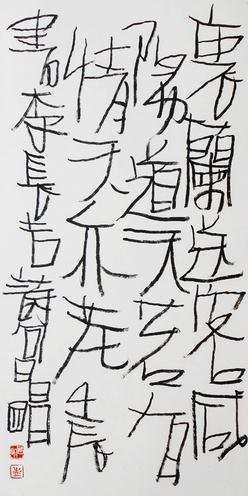 衰蘭送客咸
陽道天若有
情天亦老壬辰
書李長吉詩